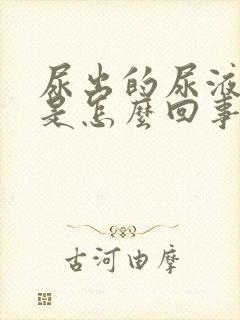 尿出的尿液
是怎麼回事
古河由摩